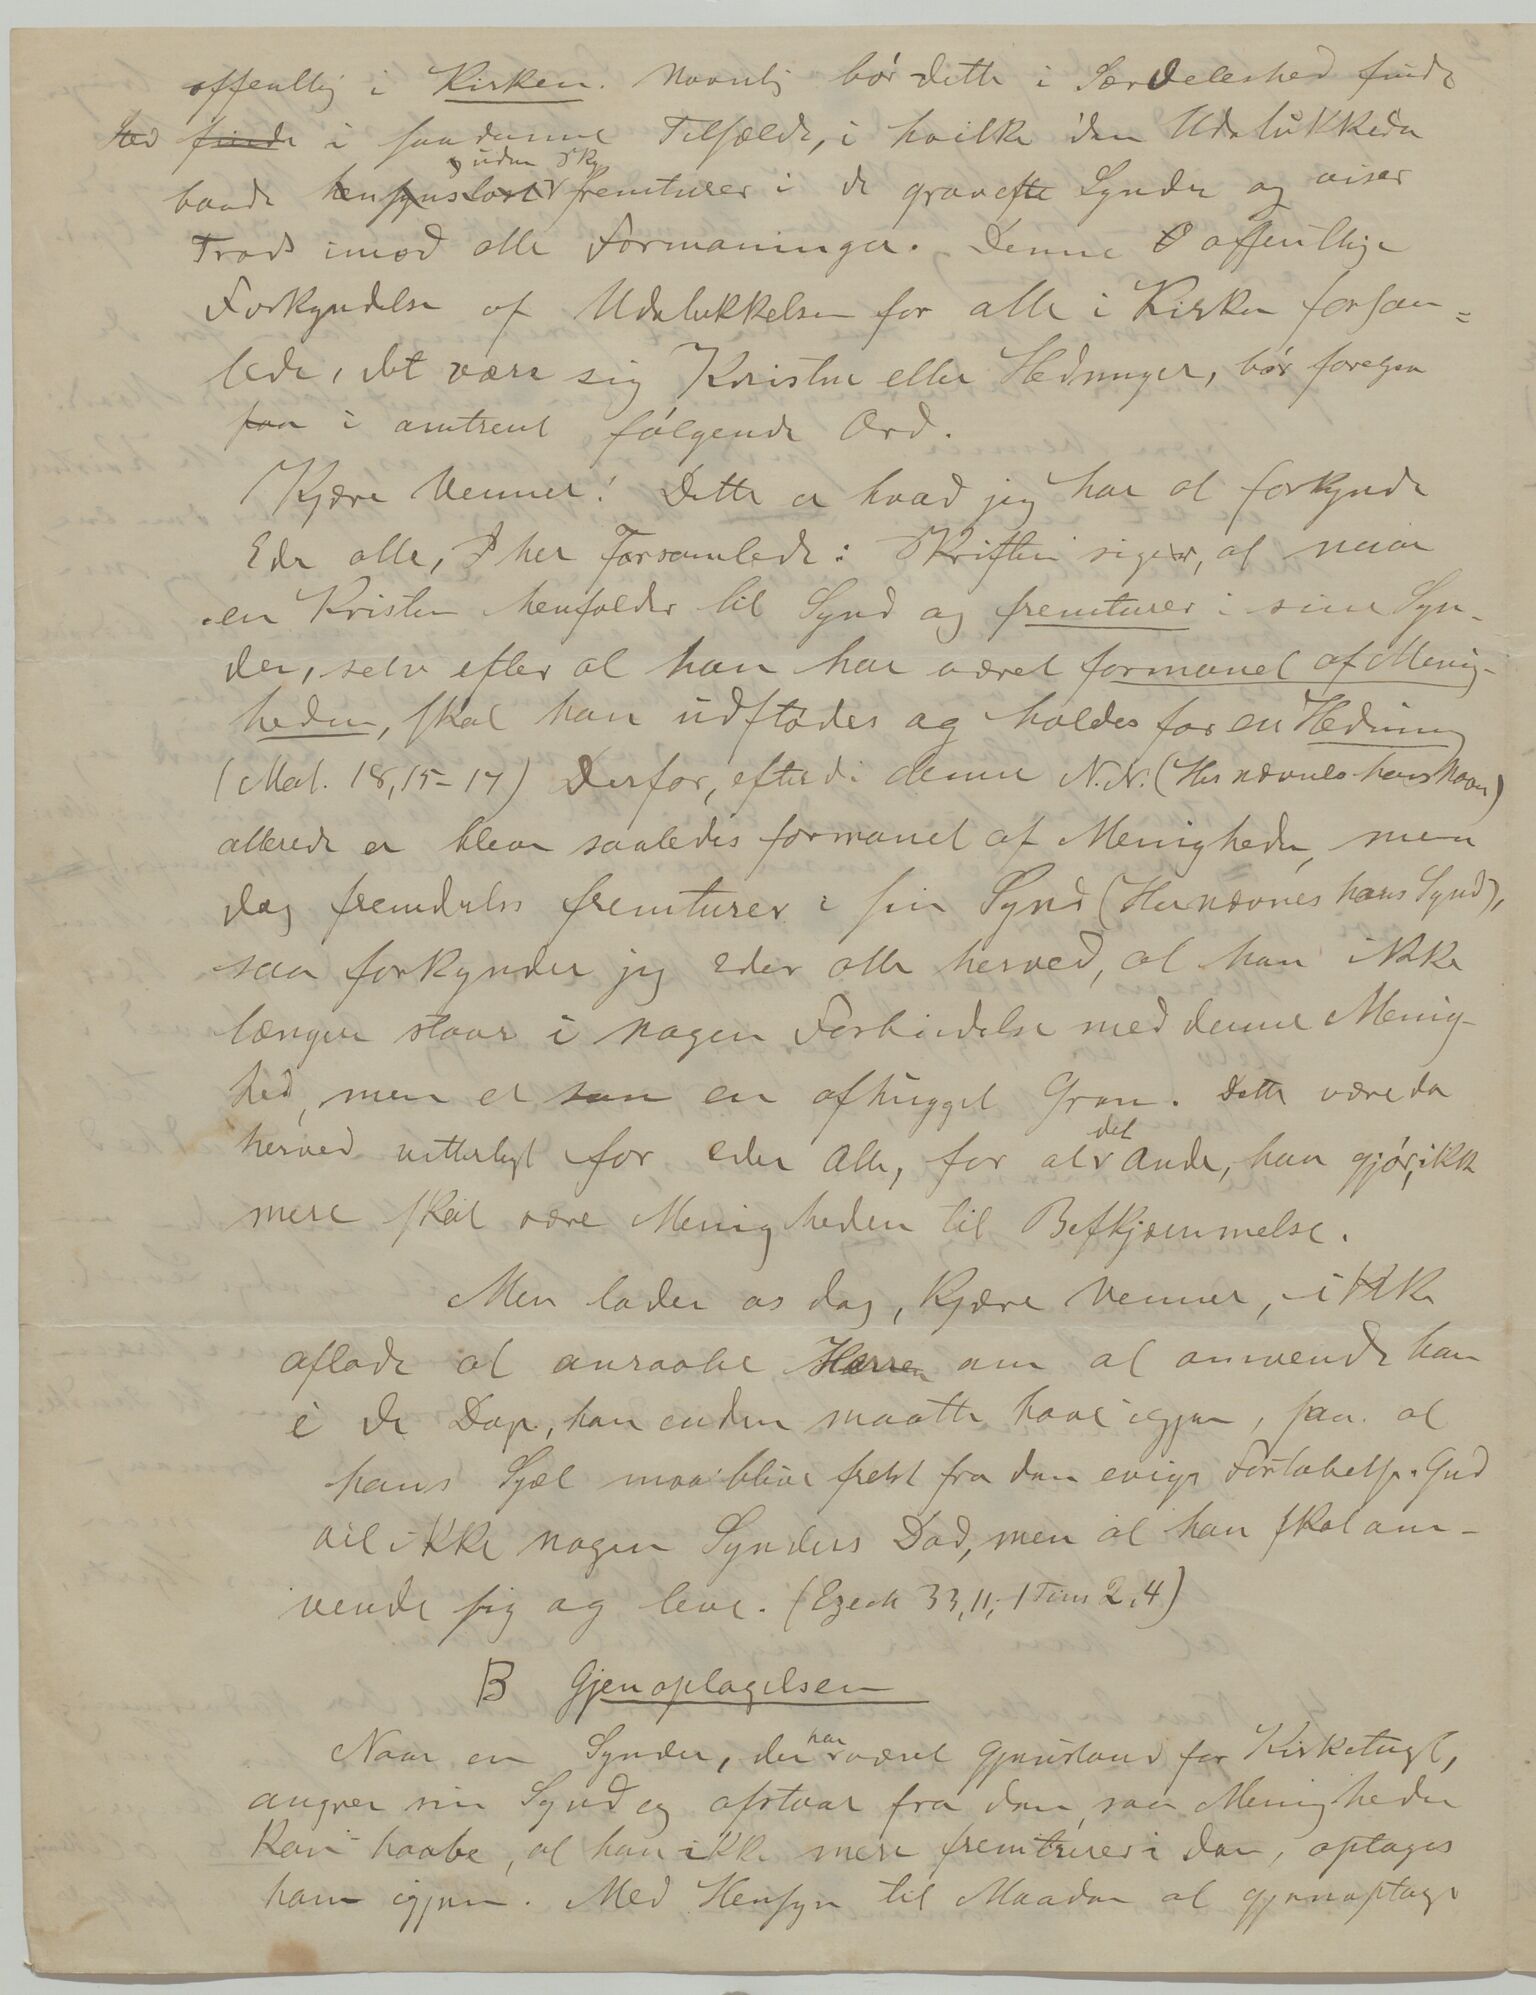 offentlig i Kirken. Navnlig bør dette i Særdeleshed finde
Sted finde i saadanne Tilfælde, i hvilke den Udelukkede
baade hensynsløst uden Sky fremturer i de groveste Synder og viser
Trods imod alle Formaninger. Denne O offentlige
Forkyndelse af Udelukkelsen for alle i Kirken forsam=
lede, det være sig Kristne eller Hedninger, bør foregaa
paa i omtrent følgende Ord.
Kjære Venner! Dette er hvad jeg har at forkynde
Eder alle, I her Forsamlede: Skriften siger, at naar
en Kristen henfalder til Synd og fremturer i sine Syn-
der, selv efter at han har været formanet af Menig-
heden, skal han udstødes og holdes for en Hedning
(Mat. 18,15-17) Derfor, efterdi denne N.N. (Her nævnes hans Navn)
allerede er bleven saaledes formanet af Menigheden, men
dog fremdeles fremturer i sin Synd (Her nævnes hans Synd),
saa forkynder jeg Eder alle herved, at han ikke
længer staar i nogen Forbindelse med denne Menig-
hed, men er som en afhugget Gren. Dette være da
herved vitterligt for eder Alle, for at det Onde, han gjør, ikke
mere skal være Menigheden til Beskjæmmelse.
Men lader os dog, Kjære Venner, ikke
aflade at anraabe Herren om at omvende ham
i de Dage, han endnu maatte have igjen, paa at
hans Sjæl maa blive frelst fra den evige Fortabelse. Gud
vil ikke nogen Synders Død, men at han skal om-
vende sig og leve. (Ezech 33,11, 1 Tim 2,4)
B Gjenoptagelsen
Naar en Synder, der har været Gjenstand for Kirketugt,
angrer sin Synd og afstaar fra den, saa Menigheden
kan haabe, at han ikke mere fremturer i den, optages
han igjen. Med Hensyn til Maaden at gjenoptage